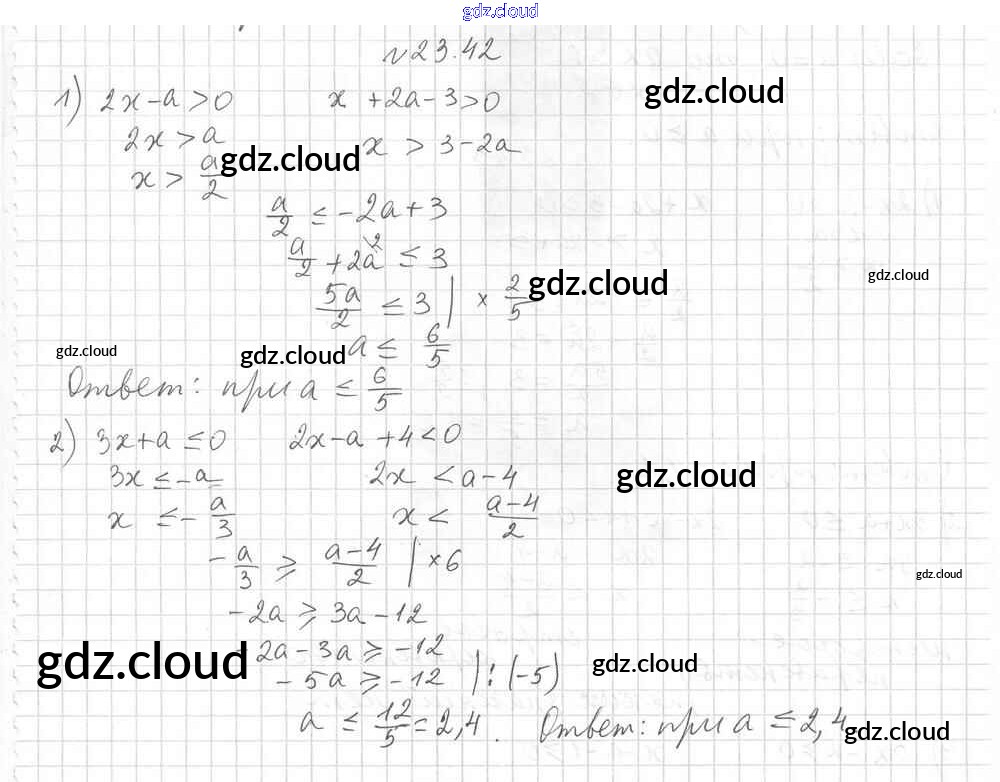 gdz.cloud
№23.42
1) 2x-a>0 x+2a-3>0 gdz.cloud
2x>a x > 3-2a
x > a/2 gdz.cloud
a/2 ≤ -2a+3
a/2 + 2a^2 ≤ 3 gdz.cloud
5a/2 ≤ 3 | × 2/5 gdz.cloud
gdz.cloud gdz.cloud a ≤ 6/5
Ответ: при a ≤ 6/5
2) 3x+a ≤0 2x-a+4<0
3x ≤ -a 2x < a-4 gdz.cloud
x ≤ - a/3 x < (a-4)/2
- a/3 ≥ (a-4)/2 | ×6 gdz.cloud
-2a ≥ 3a-12
gdz.cloud -2a-3a ≥ -12
-5a ≥ -12 | : (-5) gdz.cloud
a ≤ 12/5 = 2,4. Ответ: при a ≤ 2,4 gdz.cloud